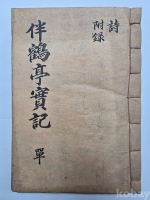 詩
附録
伴鶴亭實記
單
kobay